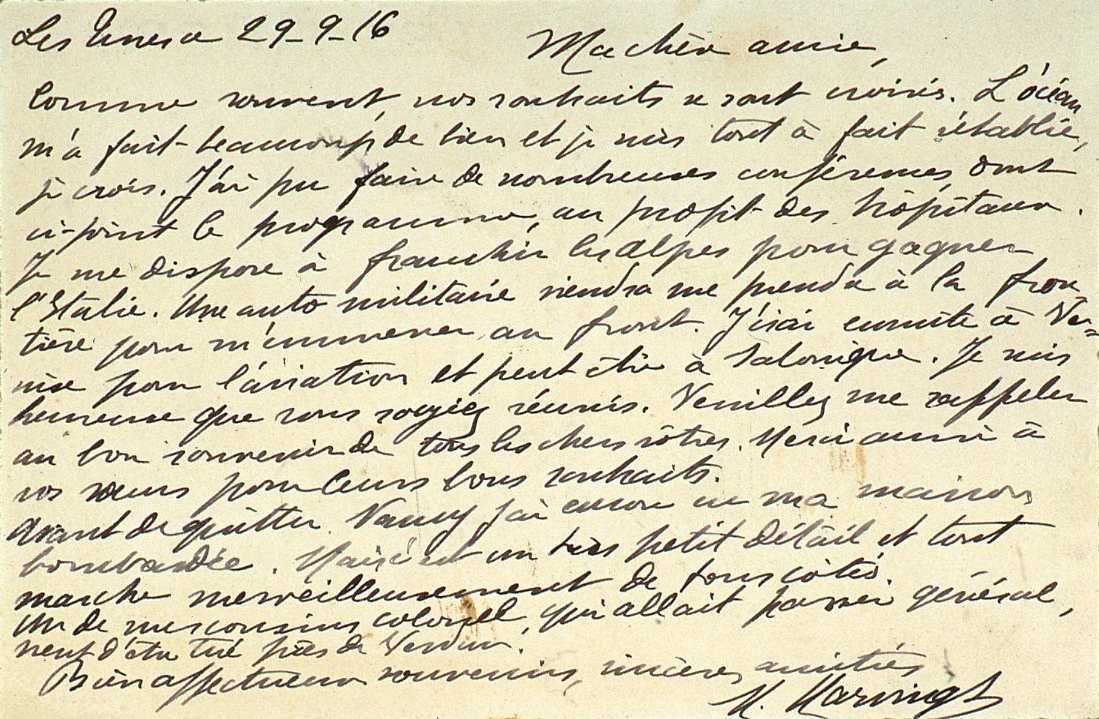 29-9-16
Ma chère amie,
Comme souvent, nos souhaits se sont croisés. L'océan
m'a fait beaucoup de bien et je suis tout à fait rétablie,
je crois. J'ai pu faire de nombreuses conférences dont
ci-joint le programme, au profit des hôpitaux.
Je me dispose à franchir les Alpes pour gagner
l'Italie. Une auto militaire viendra me prendre à la fron
tière pour m'emmener au front. J'irai ensuite à Ve-
nise pour l'aviation et peut être à Salonique. Je suis
heureuse que vous soyiez réunis. Veuillez me rappeler
au bon souvenir de tous les chers vôtres. Merci aussi à
vos sœurs pour leurs bons souhaits.
Avant de quitter Nancy j'ai encore eu ma maison
bombardée. Mais c'est un très petit détail et tout
marche merveilleusement de tous côtés.
Un de mes cousins colonel, qui allait passer général,
vient d'être tué près de Verdun.
Bien affectueux souvenirs, sincères amitiés
M. Marvingt